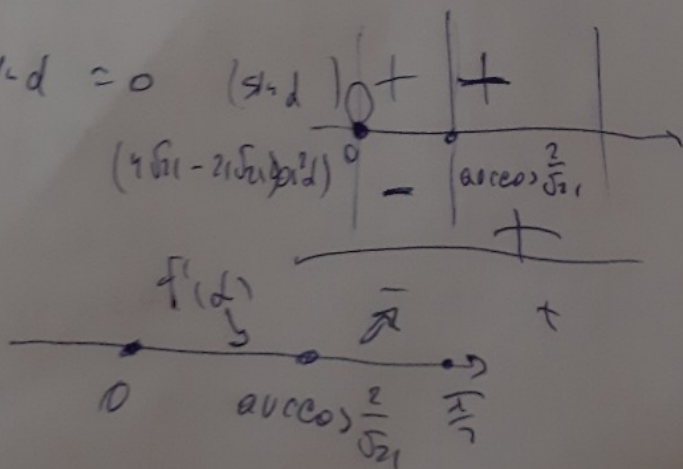 d = 0 (sin α ) + +
0
(4√21 - 21√21 cos²α) - arccos 2/√21 +
f'(α) - +
0 arccos 2/√21 π/2